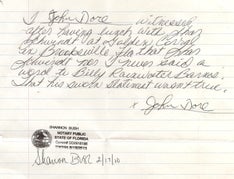 I John Dore witnessing
after having lunch with Shaz
Schwindt at Golden Corral
in Brooksville Fla that Shaz
Schwindt nor I never said a
word to Billy Rainwater Barnes.
That his sworn statement wasn't true.
x John Dore
SHANNON BUSH
NOTARY PUBLIC
STATE OF FLORIDA
Shannon Bush 2/17/10